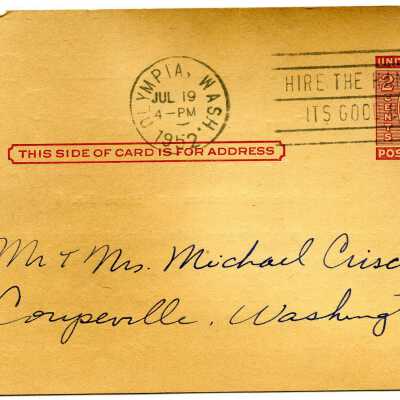 OLYMPIA, WASH.
JUL 19
4-PM
1952
HIRE THE
ITS GOOD
UNIT
2
CENTS
POS
THIS SIDE OF CARD IS FOR ADDRESS
Mr & Mrs. Michael Crisc
Coupeville, Washingt